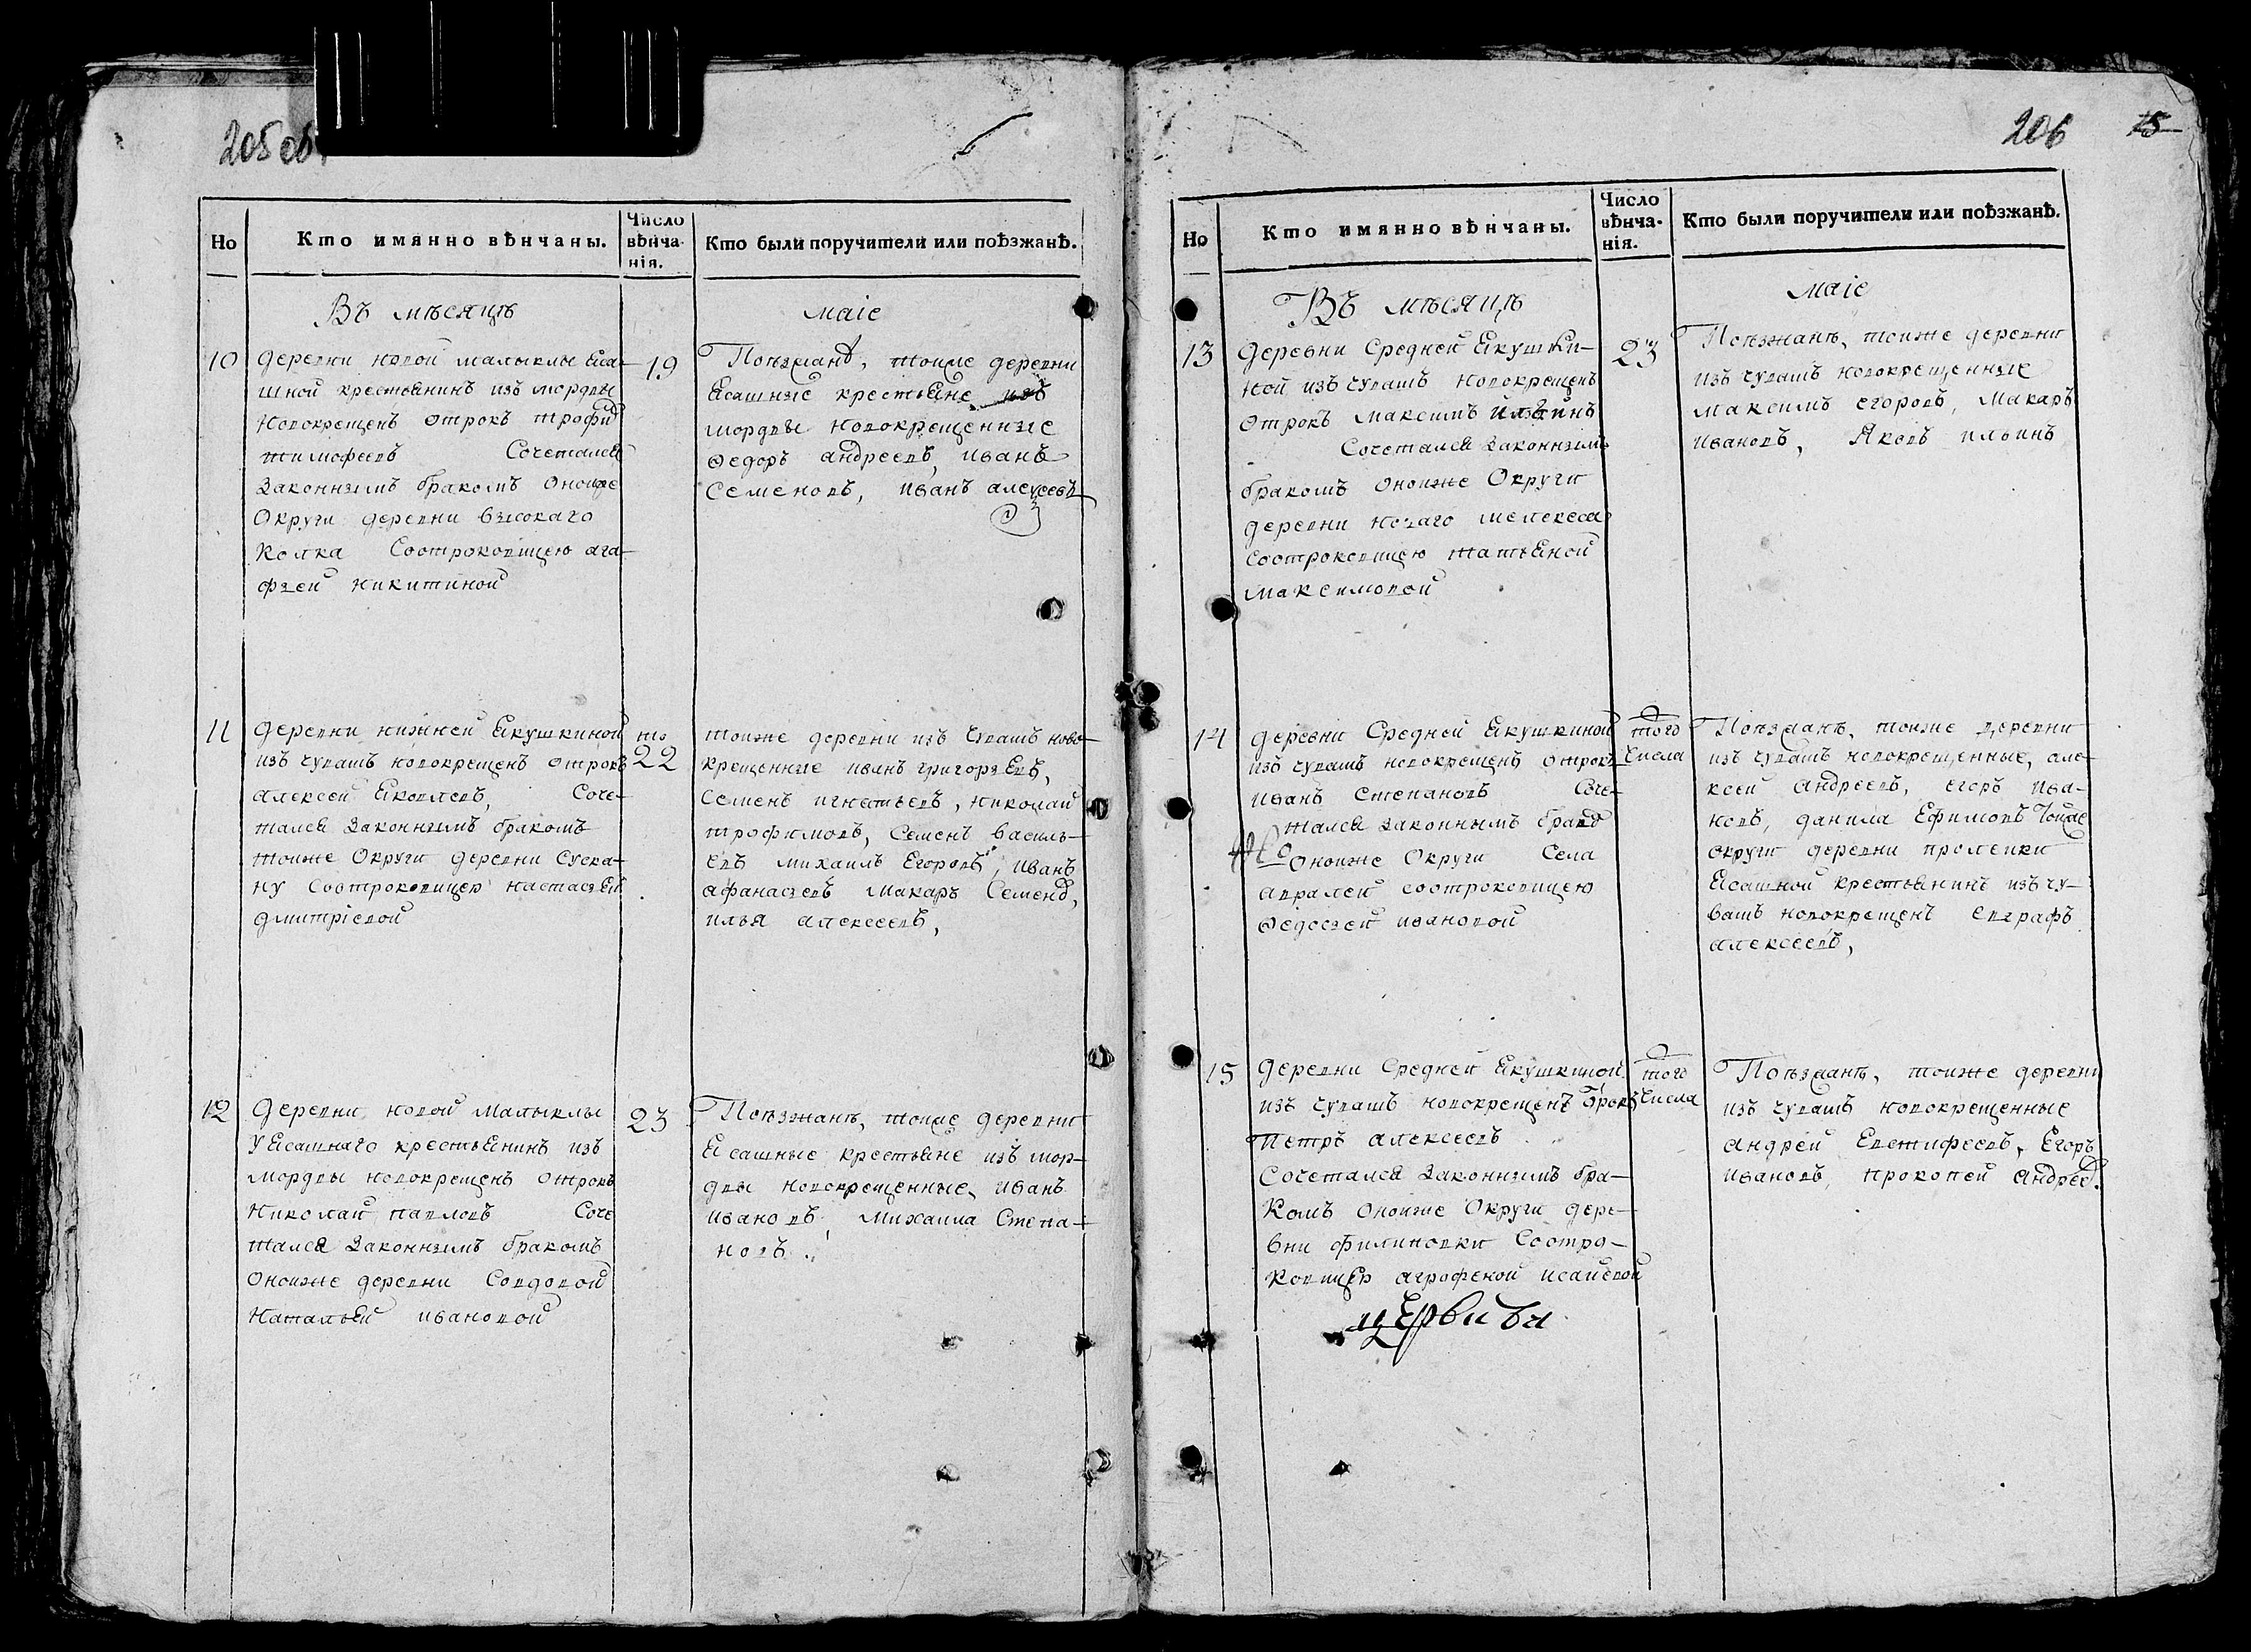 205 об.
Но
Кто имянно вѣнчаны.
Число вѣнча-нія.
Кто были поручители или поѣзжанѣ.
Въ мѣсяцѣ
маіе
10
деревни новой малыклы Яса-
шной крестьянинъ изъ мордвы
новокрещенъ отрокъ трофи
тимофеевъ Сочетался
Законнымъ бракомъ оноиже
Округи деревни высокаго
Колка Соотроковицею ага-
фьей никитиной
19
Поѣзжанѣ, тоиже деревни
Ясашные крестьяне изъ
мордвы новокрещенные
Ѳедоръ андреевъ, иванъ
Семеновъ, иванъ алексеевъ
11
деревни нижней Якушкиной
изъ чувашъ новокрещенъ отрокъ
алексеи Яковлевъ, Соче-
тался Законнымъ бракомъ
тоиже Округи деревни Суска-
ну Соотроковицею настасьей
дмитріевой
то
22
тоиже деревни изъ чувашъ ново-
крещенные иванъ григорьевъ,
Семенъ игнатьевъ, николаи
трофимовъ, Семенъ василь-
евъ михаилъ Егоровъ, иванъ
афанасьевъ макаръ Семенов,
илья алексеевъ,
12
деревни новой малыклы
уясашнаго крестьянинъ изъ
мордвы новокрещенъ отрокъ
николаи павловъ Соче
тался Законнымъ бракомъ
оноиже деревни Совдовой
натальей ивановой
23
Поѣзжанѣ, тоиже деревни
Ясашные крестьяне изъ мор-
двы новокрещенные, иванъ
ивановъ, михаила Степа-
новъ.
206
15
Но
Кто имянно вѣнчаны.
Число вѣнча-нія.
Кто были поручители или поѣзжанѣ.
Въ мѣсяцѣ
маіе
13
деревни Средней Якушки-
ной изъ чувашъ новокрещенъ
отрокъ максимъ ильинъ
Сочетался Законнымъ
бракомъ оноиже Округи
деревни новаго мелекеса
соотроковицею татьяной
максимовой
23
Поѣзжанѣ, тоиже деревни
изъ чувашъ новокрещенные
максимъ егоровъ, макаръ
ивановъ, Яковъ ильинъ
14
деревни Средней Якушкиной
изъ чувашъ новокрещенъ отрокъ
иванъ степановъ Соче-
тался законнымъ брако
оноиже Округи Села
авралей соотроковицею
Ѳедосьей ивановой
того
Числа
Поѣзжанѣ, тоиже деревни
изъ чувашъ новокрещенные, але-
ксеи андреевъ, егоръ ива-
новъ, данила Ефимовъ тоиже
округи деревни пролейки
Ясашной крестьянинъ изъ чу-
вашъ новокрещенъ евграфъ
алексеевъ,
15
деревни Средней Якушкиной
изъ чувашъ новокрещенъ отрокъ
Петръ алексеевъ
Сочетался Законнымъ бра-
комъ оноиже Округи дере-
вни филиповки Соотро-
ковицею агрофеной исаиевой
того
Числа
Поѣзжанѣ, тоиже деревни
изъ чувашъ новокрещенные
андрей Евстифеевъ, Егоръ
ивановъ, прокопей андрее.
церкви